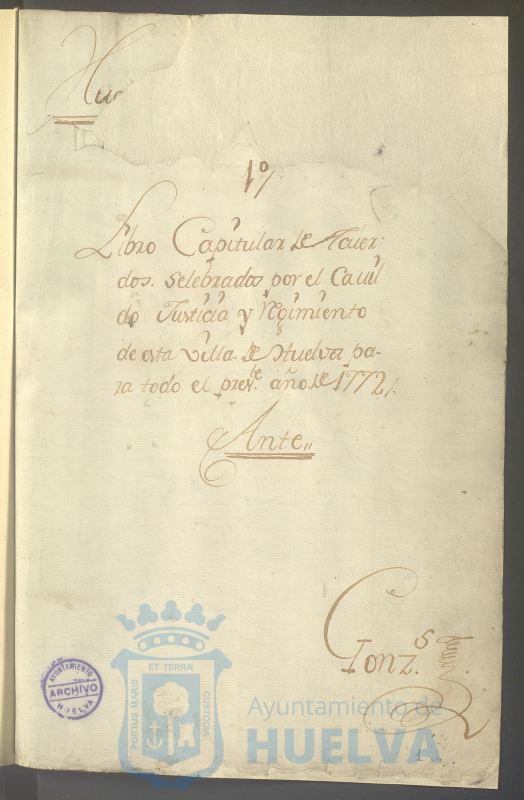 Hu
1º/.
Libro Capitular de Acuer-
dos. Selebrados por el Cavil
do Justicia y Regimiento
de esta Villa de Huelva pa-
ra todo el pres.te año de 1772/.
Ante,,
Gonz.s
AYUNTAMIENTO
ARCHIVO
HUELVA
ET TERRÆ
PORTUS MARIS
CUSTODIA
Ayuntamiento de
HUELVA